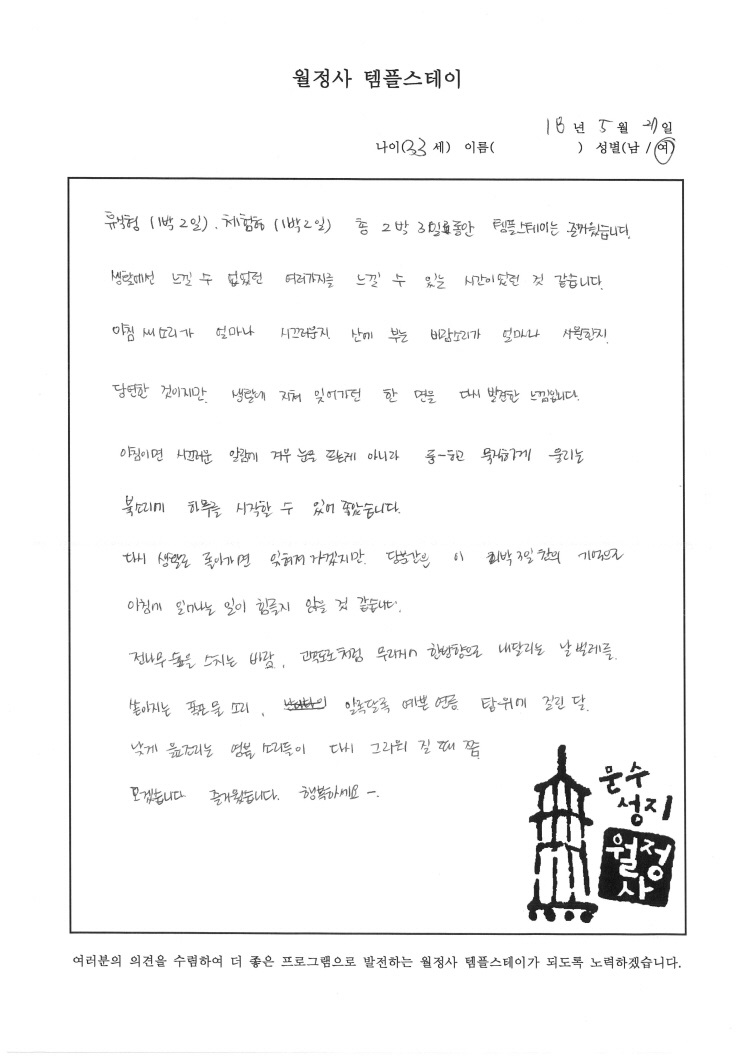 월정사 템플스테이
18 년 5 월 27 일
나이(33 세) 이름( ) 성별(남 / 여)
휴식형 (1박2일), 체험형 (1박2일) 총 2박 3일동안 템플스테이는 즐거웠습니다.
생활에선 느낄 수 없었던 여러가지를 느낄 수 있는 시간이었던 것 같습니다.
아침 새소리가 얼마나 시끄러운지, 산에 부는 바람소리가 얼마나 시원한지,
당연한 것이지만, 생활에 지쳐 잊어가던 한 면을 다시 발견한 느낌입니다.
아침이면 시끄러운 알람에 겨우 눈을 뜨는게 아니라 웅-하고 묵직하게 울리는
북소리에 하루를 시작할 수 있어 좋았습니다.
다시 생활로 돌아가면 잊혀져 가겠지만, 당분간은 이 2박 3일간의 기억으로
아침에 일어나는 일이 힘들지 않을 것 같습니다.
전나무 숲을 스치는 바람, 고속도로처럼 무리지어 한방향으로 내달리는 날벌레들,
쏟아지는 폭포 물 소리, 알록달록 예쁜 연등 탑위에 걸린 달,
낮게 읊조리는 염불 소리들이 다시 그리워 질 때 쯤
오겠습니다 즐거웠습니다. 행복하세요 -.
문수
성지
월정
사
여러분의 의견을 수렴하여 더 좋은 프로그램으로 발전하는 월정사 템플스테이가 되도록 노력하겠습니다.